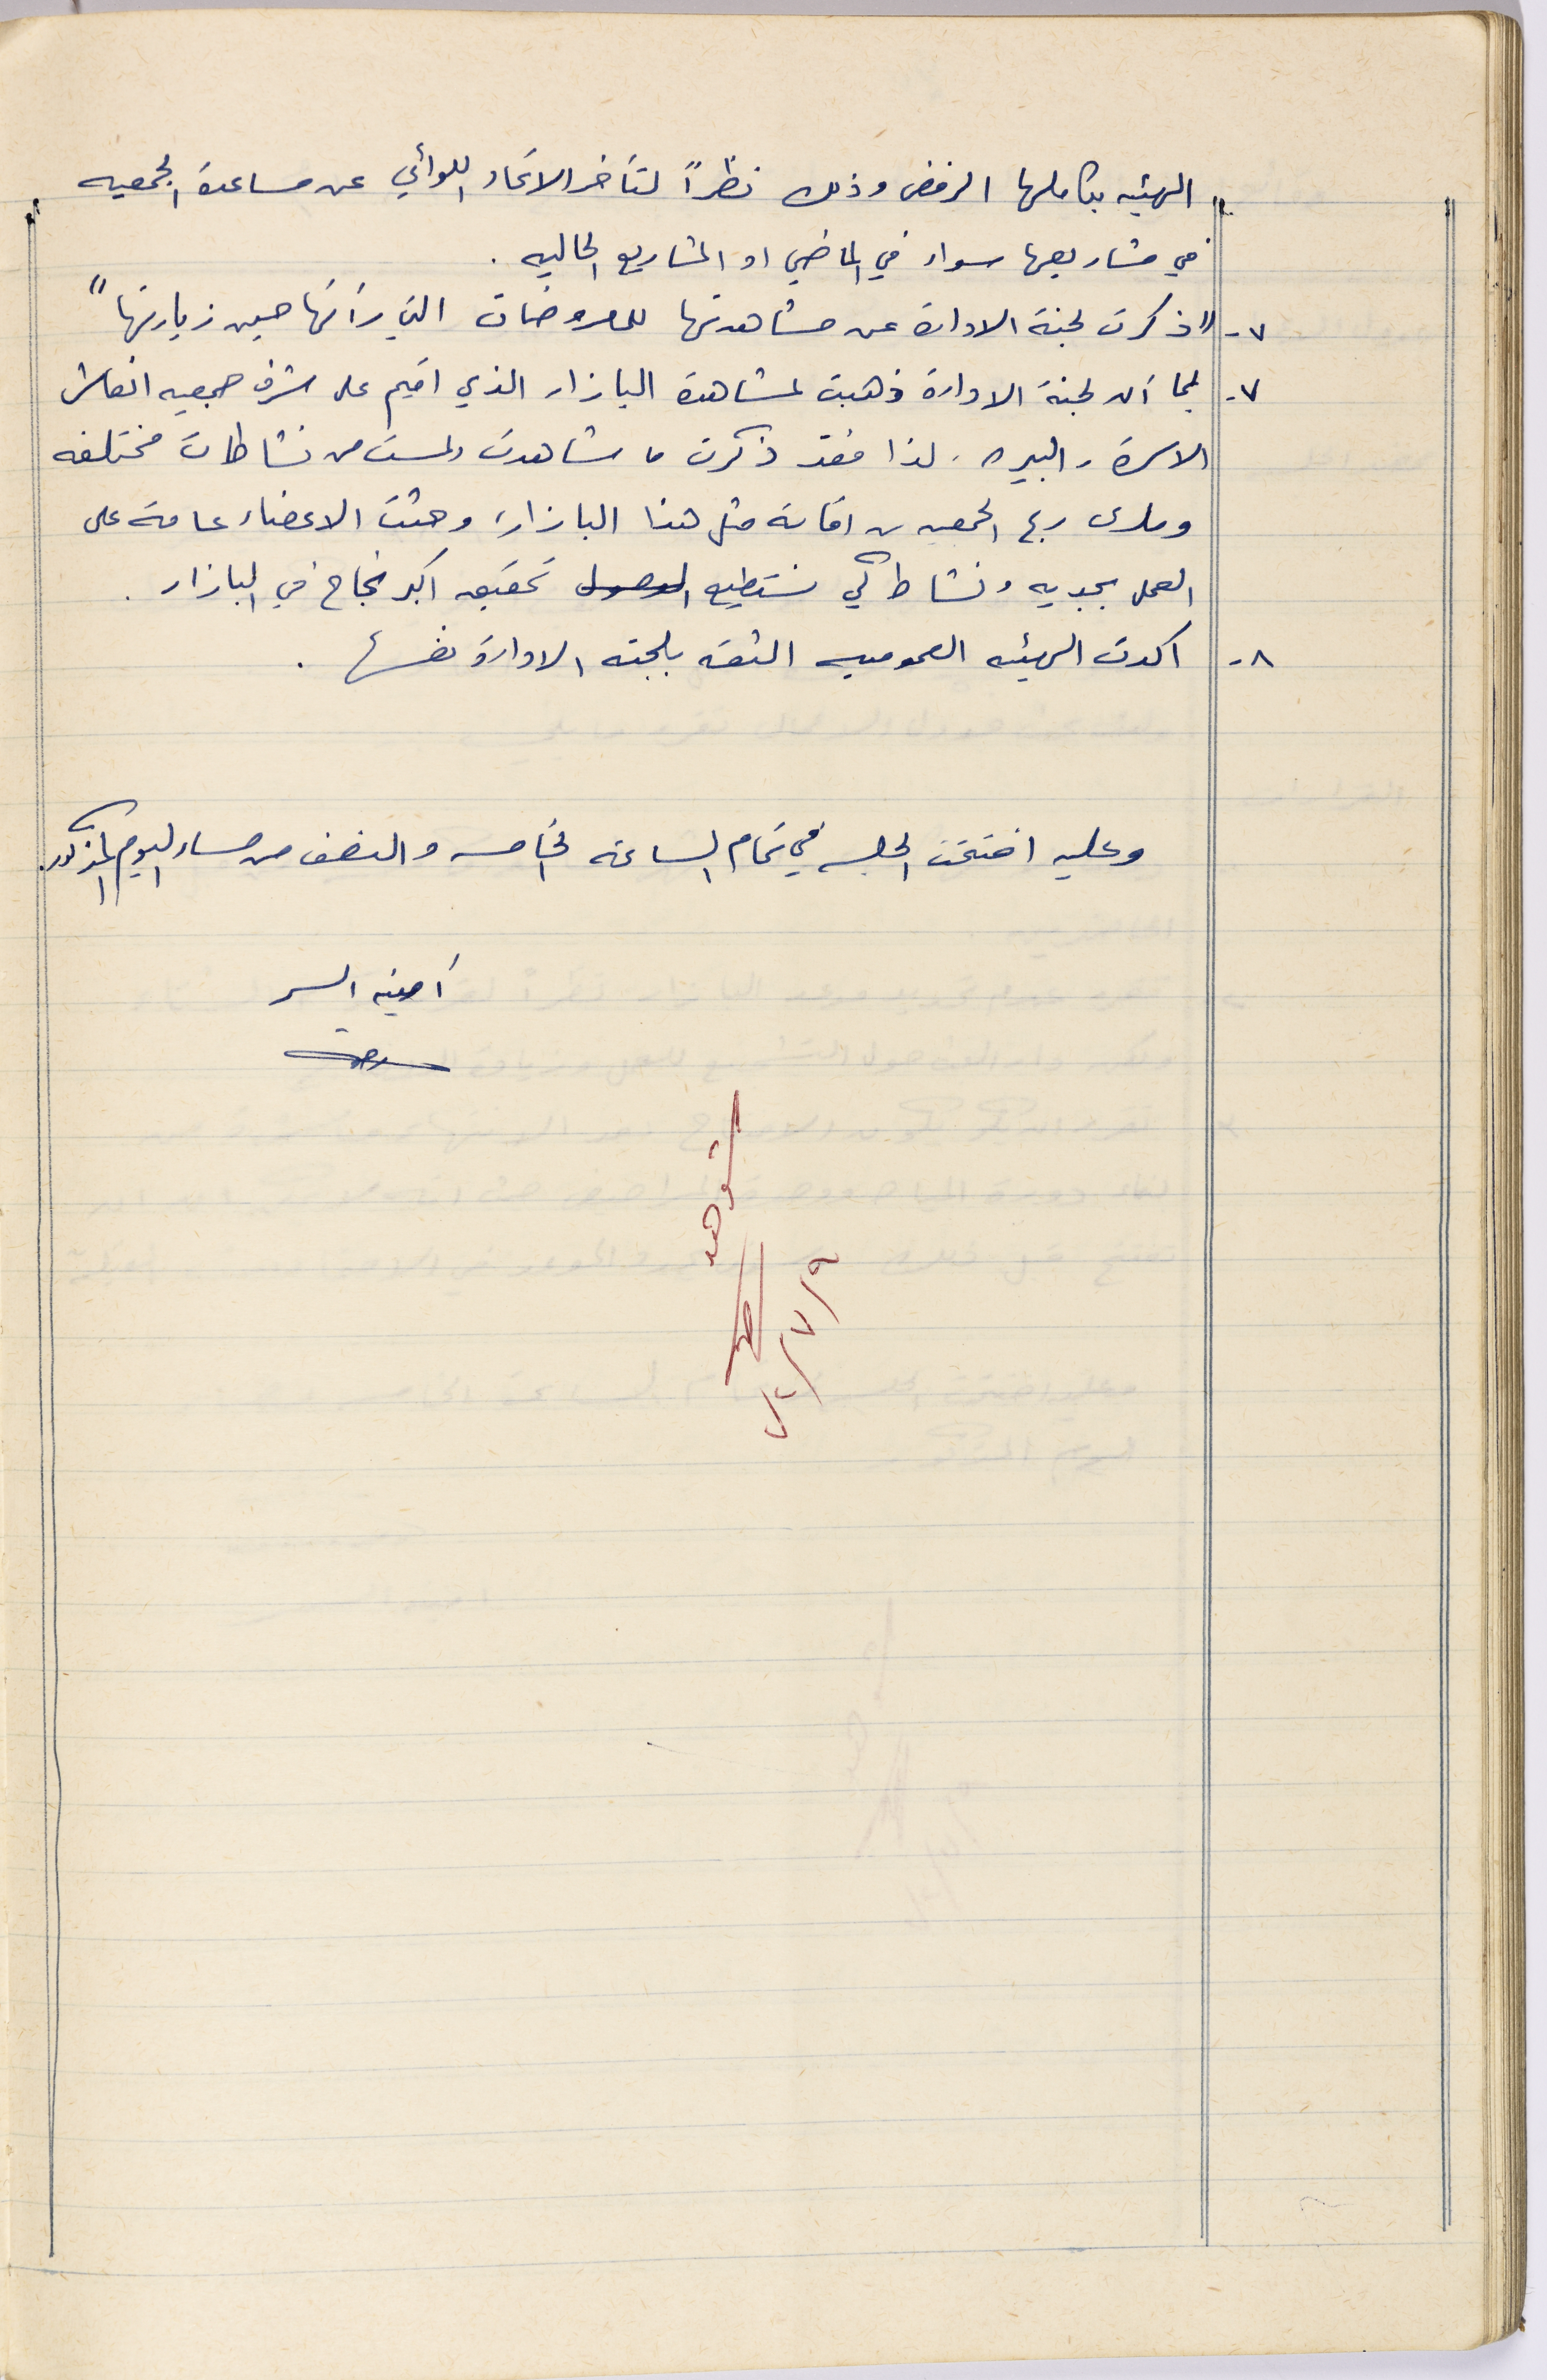 الهيئه بكاملها الرفض وذلك نظراً لتأخر الاتحاد اللوائي عن مساعدة الجمعيه
في مشاريعها سواء في الماضي او المشاريع الحاليه .
٧- "ذكرت لجنة الادارة عن مشاهدتها للمعروضات التي رأتها حين زيارتها"
٧- بما أن لجنة الادارة ذهبت لمشاهدة البازار الذي اقيم على شرف جمعيه انعاش
الاسرة - البيره . لذا فقد ذكرت ما شاهدت ولمست من نشاطات مختلفه
ومدى ربح الجمعيه من اقامة مثل هذا البازار، وحثت الاعضاء عامة على
العمل بجديه ونشاط كي نستطيع الوصول تحقيق اكبر نجاح في البازار .
٨- اكدت الهيئه العموميه الثقه بلجنه الادارة نفسها .
وعليه اختتمت الجلسه في تمام الساعه الخامسه والنصف من مساء اليوم المذكور.
أمينه السر
شوهد
٩/٧/